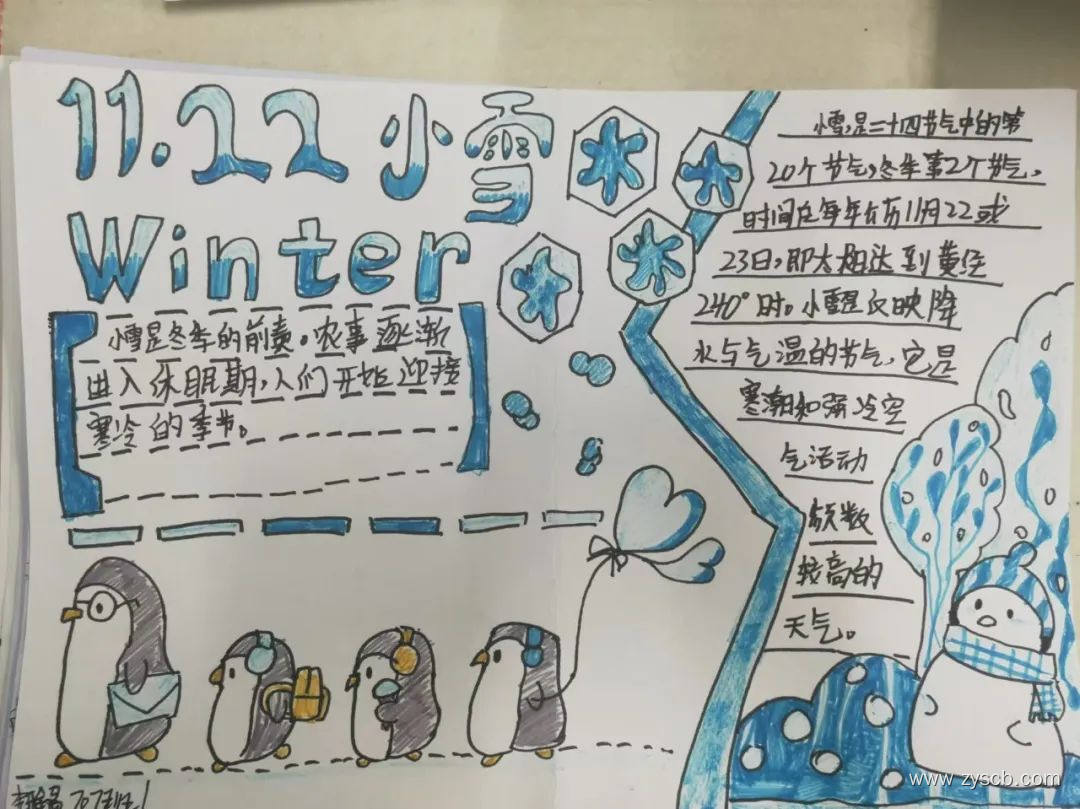 11.22 小雪
Winter
小雪是冬季的前奏。农事逐渐
进入休眠期,人们开始迎接
寒冷的季节。
小雪,是二十四节气中的第
20个节气,冬季第2个节气,
时间在每年公历11月22或
23日,即太阳达到黄经
240°时。小雪是反映降
水与气温的节气,它是
寒潮和强冷空
气活动
频数
较高的
天气。
www.zyscb.com